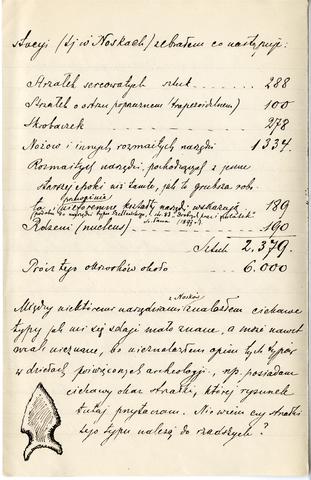 stacyi (tj w Noskach) zebrałem co następuje:
Strzałek sercowatych sztuk 288
Strzałek o ostrzu poprzecznem (trapezoidalnem) 100
Skrobaczek 278
Nożów i innych rozmaitych narzędzi 1334.
Rozmaitych narzędzi, pochodzących z jeszcze
starszej epoki niż tamte, jak to grubsza robo-
ta i nieforemne kształty narzędzi wskazują 189
Rdzeni (nucleus) 190
Sztuk 2.379.
Prócz tego okrzosków około 6.000
Między niektóremi narzędziami z Nosków znalazłem ciekawe
typy jak mi się zdaje mało znane, a może nawet
wcale nieznane, bo nieznalazłem opisu tych typów
w dziełach poświęconych archeologji, np. posiadam
ciekawy okaz strzałki, której rysunek
tutaj przytaczam. Nie wiem czy strzałki
tego typu należą do rzadszych?